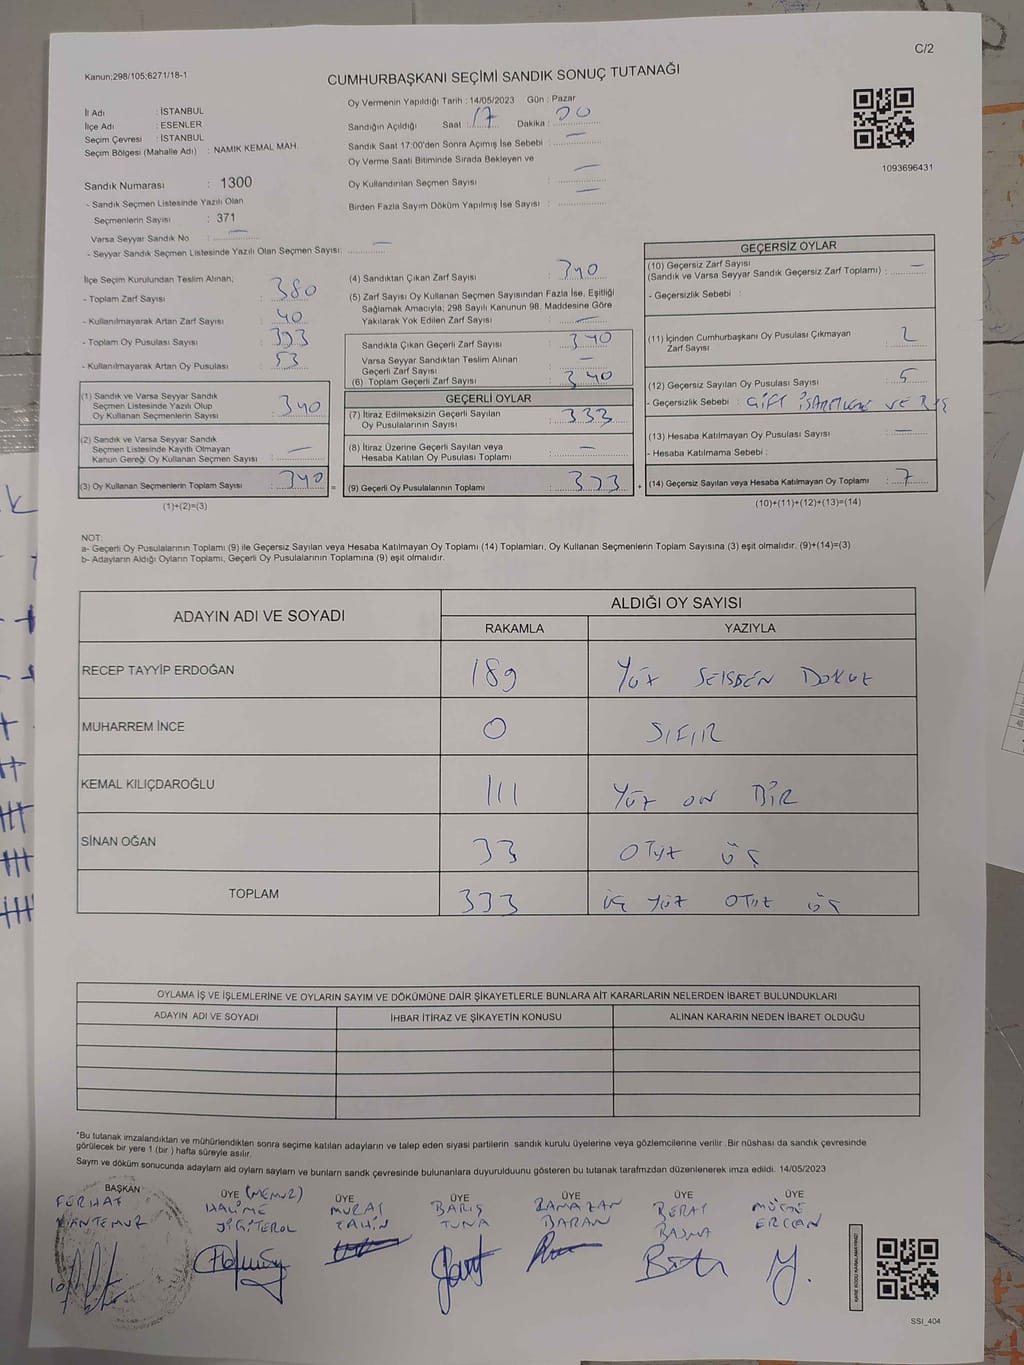 C/2
Kanun;298/105;6271/18-1
CUMHURBAŞKANI SEÇİMİ SANDIK SONUÇ TUTANAĞI
Oy Vermenin Yapıldığı Tarih : 14/05/2023 Gün : Pazar
İl Adı : İSTANBUL
İlçe Adı : ESENLER
Seçim Çevresi : İSTANBUL
Seçim Bölgesi (Mahalle Adı) : NAMIK KEMAL MAH.
Sandığın Açıldığı Saat : 17 Dakika : 00
Sandık Saat 17:00'den Sonra Açımış İse Sebebi : —
Oy Verme Saati Bitiminde Sırada Bekleyen ve
Oy Kullandırılan Seçmen Sayısı : —
Birden Fazla Sayım Döküm Yapılmış İse Sayısı : —
1093696431
Sandık Numarası : 1300
- Sandık Seçmen Listesinde Yazılı Olan
Seçmenlerin Sayısı : 371
Varsa Seyyar Sandık No : —
- Seyyar Sandık Seçmen Listesinde Yazılı Olan Seçmen Sayısı: —
İlçe Seçim Kurulundan Teslim Alınan;
- Toplam Zarf Sayısı : 380
- Kullanılmayarak Artan Zarf Sayısı : 40
- Toplam Oy Pusulası Sayısı : 393
- Kullanılmayarak Artan Oy Pusulası : 53
(1) Sandık ve Varsa Seyyar Sandık
Seçmen Listesinde Yazılı Olup
Oy Kullanan Seçmenlerin Sayısı : 340
(2) Sandık ve Varsa Seyyar Sandık
Seçmen Listesinde Kayıtlı Olmayan
Kanun Gereği Oy Kullanan Seçmen Sayısı : —
(3) Oy Kullanan Seçmenlerin Toplam Sayısı : 340 =
(1)+(2)=(3)
(4) Sandıktan Çıkan Zarf Sayısı : 340
(5) Zarf Sayısı Oy Kullanan Seçmen Sayısından Fazla İse, Eşitliği
Sağlamak Amacıyla; 298 Sayılı Kanunun 98. Maddesine Göre
Yakılarak Yok Edilen Zarf Sayısı : —
Sandıkta Çıkan Geçerli Zarf Sayısı : 340
Varsa Seyyar Sandıktan Teslim Alınan
Geçerli Zarf Sayısı : —
(6) Toplam Geçerli Zarf Sayısı : 340
GEÇERLİ OYLAR
(7) İtiraz Edilmeksizin Geçerli Sayılan
Oy Pusulalarının Sayısı : 333
(8) İtiraz Üzerine Geçerli Sayılan veya
Hesaba Katılan Oy Pusulası Toplamı : —
(9) Geçerli Oy Pusulalarının Toplamı : 333 +
GEÇERSİZ OYLAR
(10) Geçersiz Zarf Sayısı
(Sandık ve Varsa Seyyar Sandık Geçersiz Zarf Toplamı) : —
- Geçersizlik Sebebi :
(11) İçinden Cumhurbaşkanı Oy Pusulası Çıkmayan
Zarf Sayısı : 2
(12) Geçersiz Sayılan Oy Pusulası Sayısı : 5
- Geçersizlik Sebebi : ÇİFT VE
(13) Hesaba Katılmayan Oy Pusulası Sayısı : —
- Hesaba Katılmama Sebebi :
(14) Geçersiz Sayılan veya Hesaba Katılmayan Oy Toplamı : 7
(10)+(11)+(12)+(13)=(14)
NOT:
a- Geçerli Oy Pusulalarının Toplamı (9) ile Geçersiz Sayılan veya Hesaba Katılmayan Oy Toplamı (14) Toplamları, Oy Kullanan Seçmenlerin Toplam Sayısına (3) eşit olmalıdır. (9)+(14)=(3)
b- Adayların Aldığı Oyların Toplamı, Geçerli Oy Pusulalarının Toplamına (9) eşit olmalıdır.
ADAYIN ADI VE SOYADI ALDIĞI OY SAYISI
RAKAMLA YAZIYLA
RECEP TAYYİP ERDOĞAN 189 YÜZ SEKSEN DOKUZ
MUHARREM İNCE 0 SIFIR
KEMAL KILIÇDAROĞLU 111 YÜZ ON BİR
SİNAN OĞAN 33 OTUZ ÜÇ
TOPLAM 333 ÜÇ YÜZ OTUZ ÜÇ
OYLAMA İŞ VE İŞLEMLERİNE VE OYLARIN SAYIM VE DÖKÜMÜNE DAİR ŞİKAYETLERLE BUNLARA AİT KARARLARIN NELERDEN İBARET BULUNDUKLARI
ADAYIN ADI VE SOYADI İHBAR İTİRAZ VE ŞİKAYETİN KONUSU ALINAN KARARIN NEDEN İBARET OLDUĞU
*Bu tutanak imzalandıktan ve mühürlendikten sonra seçime katılan adayların ve talep eden siyasi partilerin sandık kurulu üyelerine veya gözlemcilerine verilir. Bir nüshası da sandık çevresinde
görülecek bir yere 1 (bir ) hafta süreyle asılır.
Sayım ve döküm sonucunda adayların ald oyların sayların ve bunların sandık çevresinde bulunanlara duyurulduunu gösteren bu tutanak tarafmzdan düzenlenerek imza edildi. 14/05/2023
BAŞKAN ÜYE (MEMUR) ÜYE ÜYE ÜYE ÜYE ÜYE
FERHAT HALİME MURAT BARIŞ RAMAZAN BERAT MÜGE
KANTEMUR YİĞİTEROL ŞAHİN TUNA BARAN BASMA ERCAN
KARE KODU KARALAMAYINIZ!
SSI_404